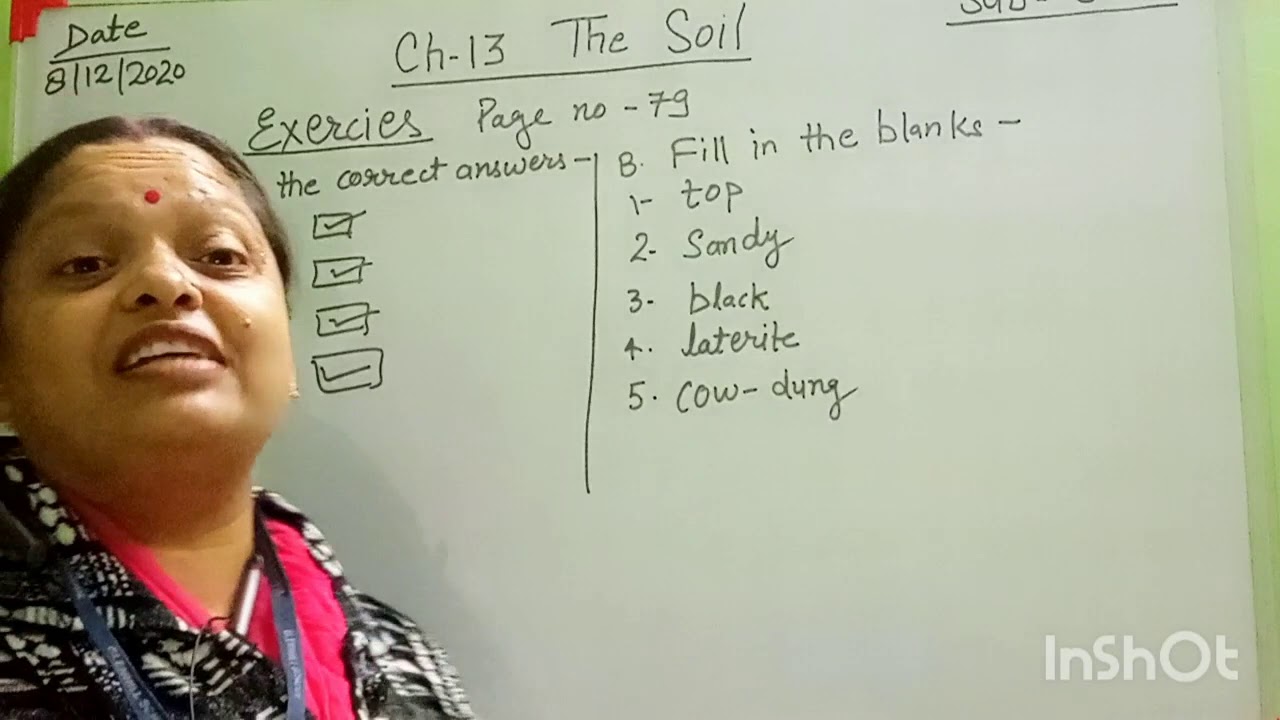 Date
8/12/2020
Ch-13 The Soil
Exercies Page no - 79
the correct answers -
B. Fill in the blanks -
1- top
2- Sandy
3- black
4. laterite
5. cow-dung
InShOt